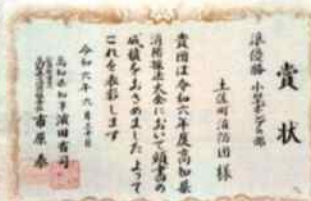 賞状
準優勝 小型ポンプの部
土佐町消防団 様
貴団は令和六年度高知県
消防操法大会において頭書の
成績をおさめました よって
これを表彰します
令和六年六月三十日
高知県知事 濵田省司
市原 泰